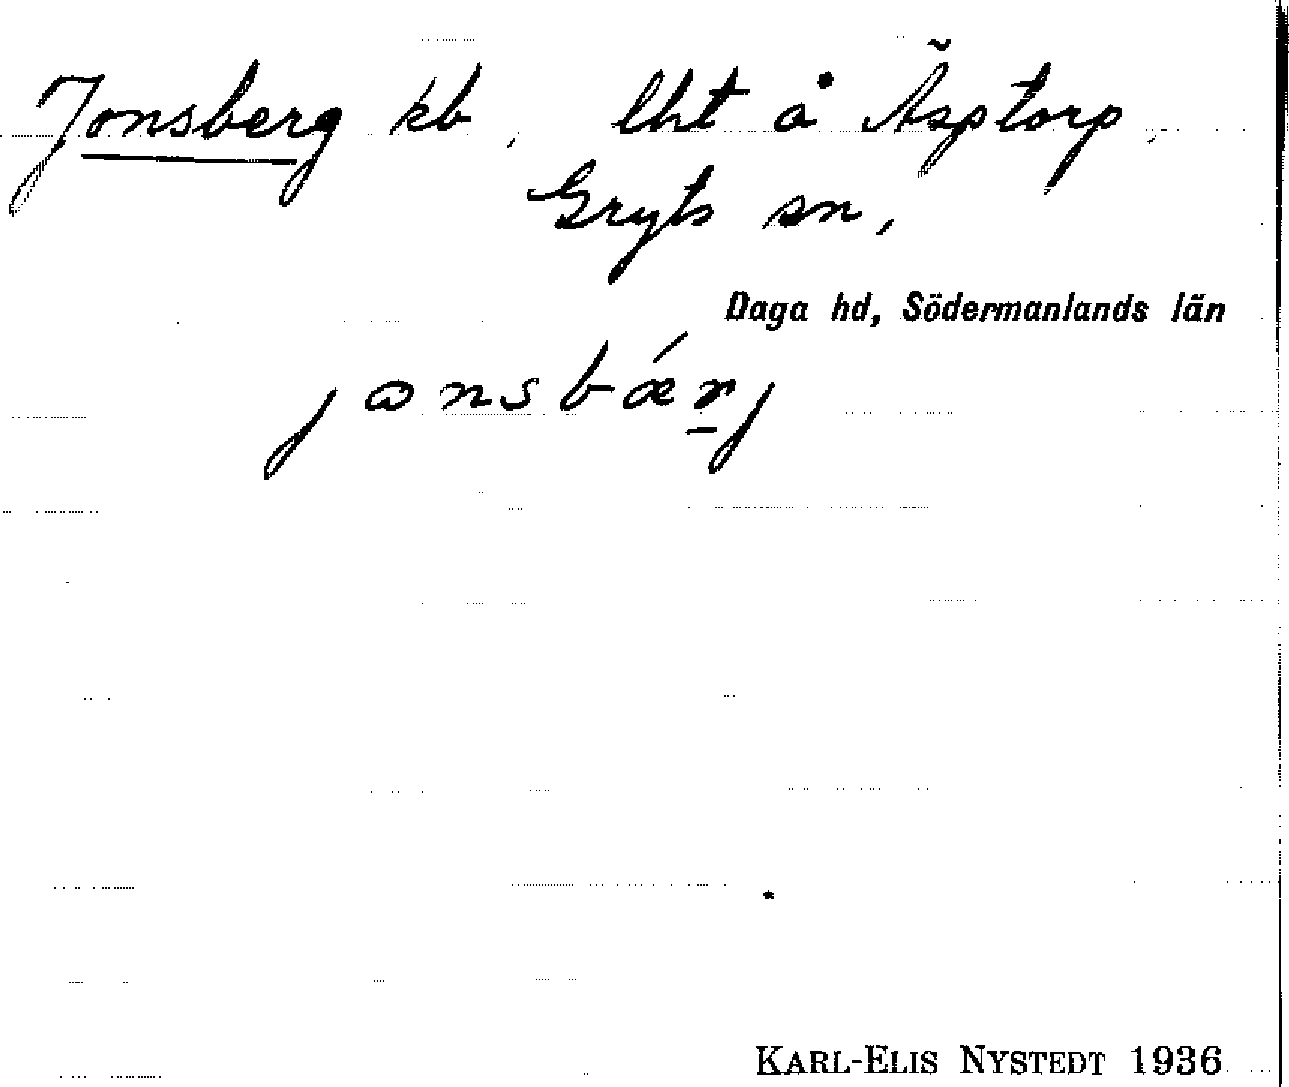 Jonsberg kb, lht å Äsptorp,
Gryts sn,
Daga hd, Södermanlands län
jɷnsbǽr̲j
KARL-ELIS NYSTEDT 1936